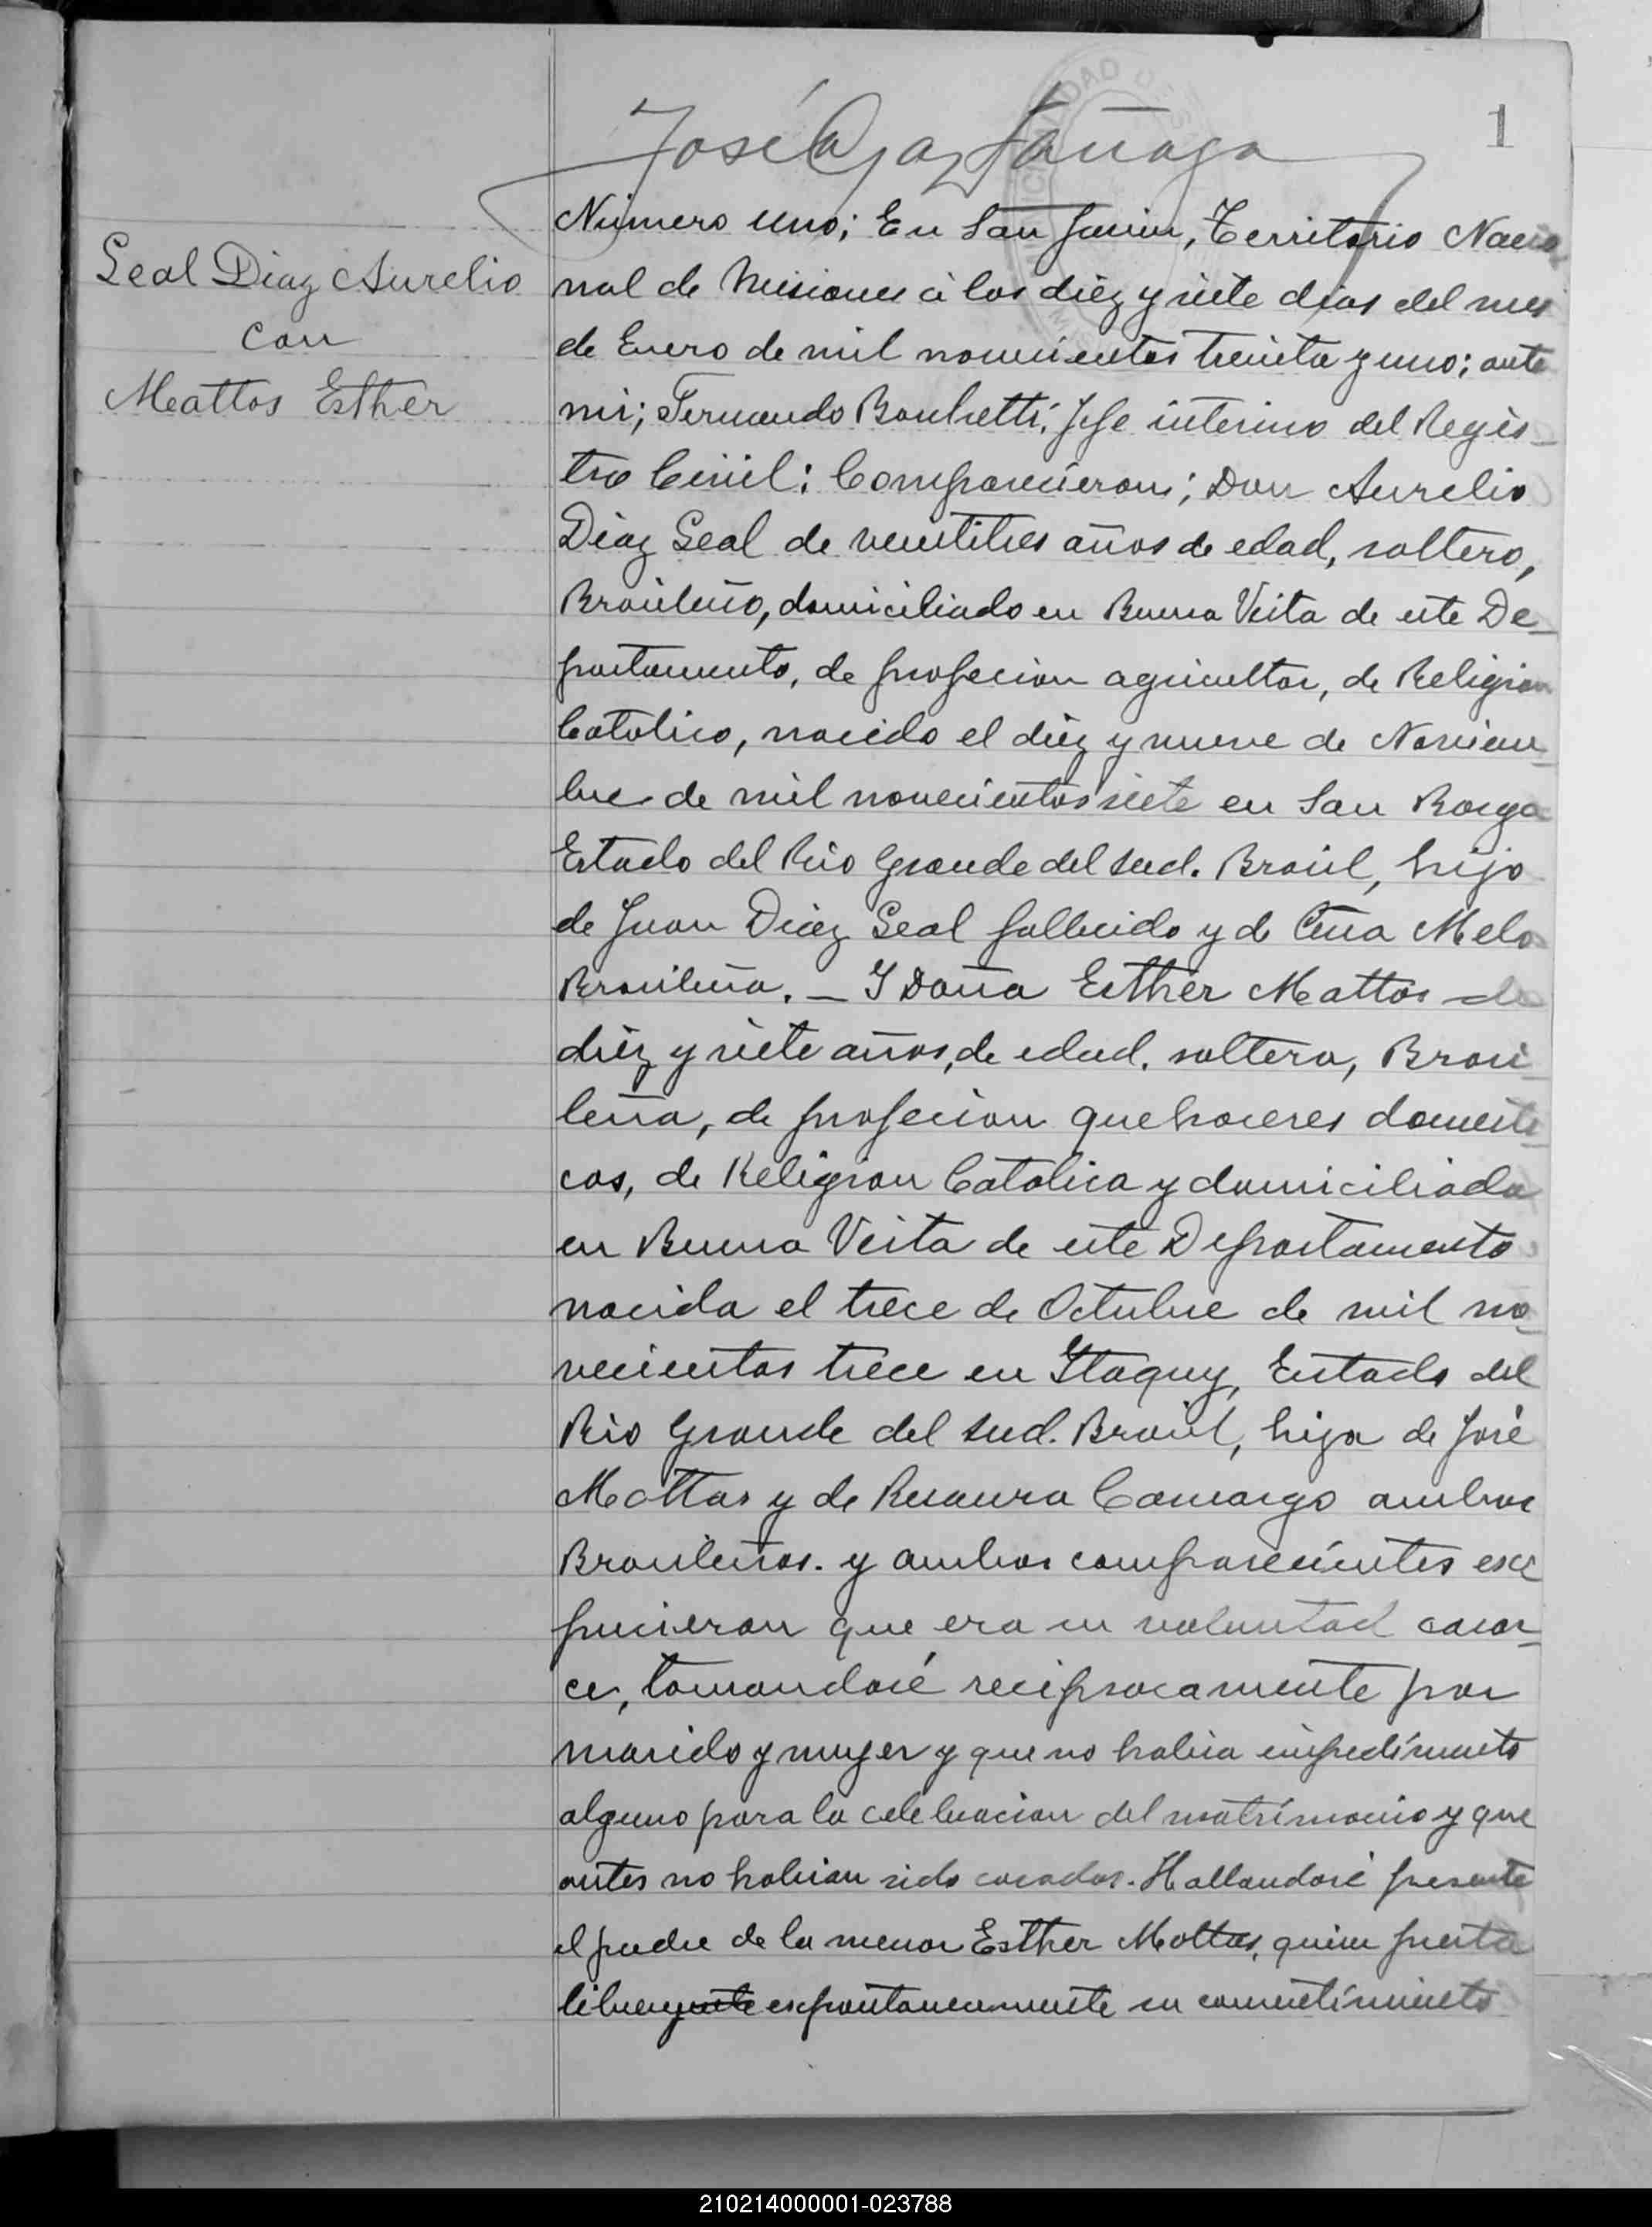 1
José
Número uno; En San Javier, Territorio Nacio
Leal Diaz Aurelio
con
Mattos Esther
nal de Misiones á los diéz y siete dias del mes
de Enero de mil novecientos treinta y uno; ante
mi; Fernando Jefe interino del Regis_
tro Civil: Comparecieron; Don Aurelio
Diaz Leal de ventitres años de edad, soltero,
Brasileño, domiciliado en Buena Vista de este De_
partamento, de profecion agricultor, de Religion
Catolico, nacido el diez y nueve de Noviem_
bre de mil novecientos siete en San Borga
Estado del Rio Grande del Sud. Brasil, hijo
de Juan Diaz Leal fallecido y de Melo
Brasileña. _ Y Doña Esther Mattos de
diéz y siete años, de edad. soltera, Brasi_
leña, de profecion quehaceres domesti_
cos, de Religion Catolica y domiciliada
en Buena Vista de este Departamento
nacida el trece de Octubre de mil no_
vecientos trece en Itaquy, Estado del
Rio Grande del Sud. Brasil, hija de José
Mattos y de Camargo ambos
Brasileños. y ambos comparecientes esx
pucieron que era su voluntad casar_
ce, tomandosé reciprocamente por
marido y muger y que no habia impedimento
alguno para la celebracion del matrimonio y que
antes no habian sido casados. Hallandosé presente
el padre de la menor Esther Mattos, quien presta
espontaneamente su consentimiento
210214000001-023788